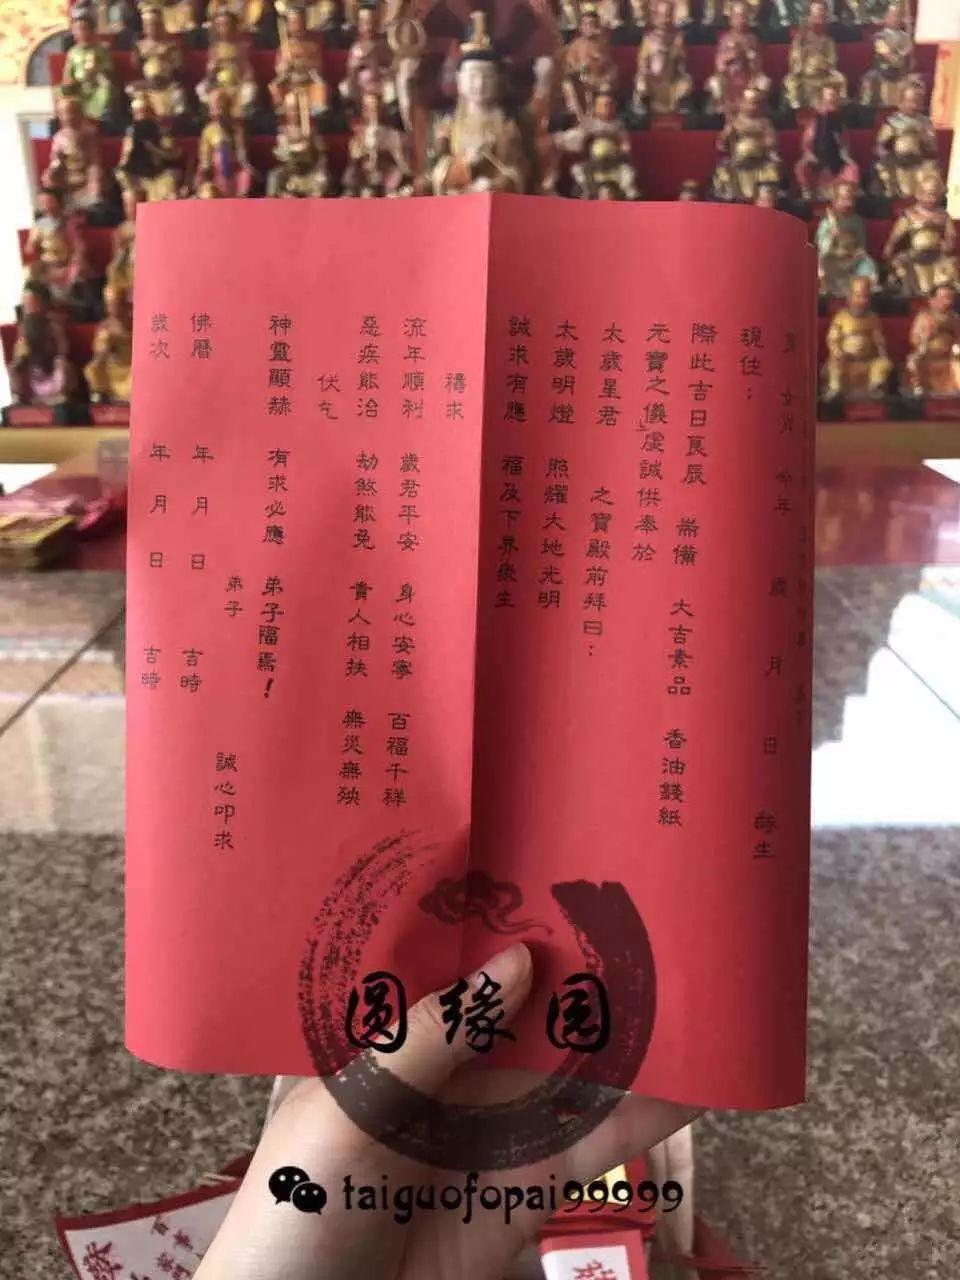 女 今年 歲 月 日 時生
現住：
際此吉日良辰 耑備 大吉素品 香油錢紙
元寶之儀，虔誠供奉於
太歲星君 之寶殿前拜曰：
太歲明燈 照耀大地光明
誠求有應 福及下界眾生
禱求
流年順利 歲君平安 身心安寧 百福千祥
惡疾能治 劫煞能免 貴人相扶 無災無殃
伏乞
神靈顯赫 有求必應 弟子福焉！
弟子 誠心叩求
佛曆 年 月 日 吉時
歲次 年 月 日 吉時
圆缘园
taiguofopai99999